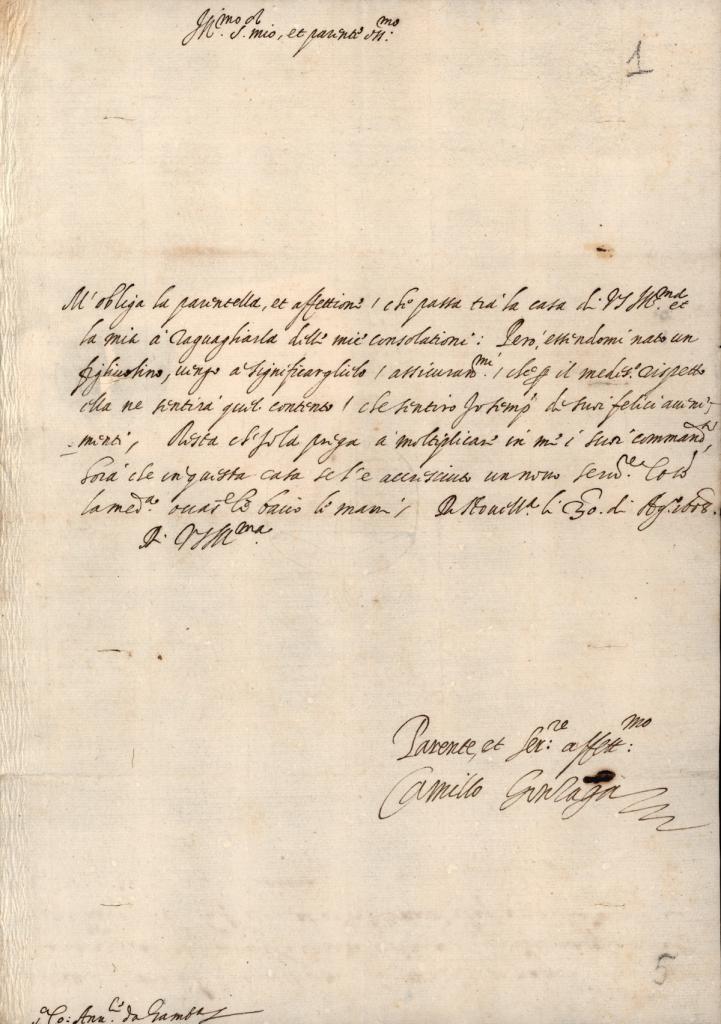 Ill.mo S.r mio, et parente oss.mo
1
M'obliga la parentella, et affettione, che passa trà la casa di V S Ill.ma et
la mia à raguagliarla delle mie consolationi: Però, essendomi nato un
figliuolino, vengo a significarglielo, assicuran.mi, che il medes.o rispetto
ella ne sentirà quel contento, che sentirò Io semp. de suoi felici aveni=
=menti, Resta ch'Io la prega à moltiplicare in me i suoi command.i,
horà che in questa casa se l'è accresciuto un novo ser.re Cosi
la med.a le bacio le mani, Da Novell.a li 30. di Ag.o 1608.
Di V S Ill.ma
Parente, et Ser.re affett.mo
Camillo Gonzaga
5
S.r Co: Ann.le da Gamb.a